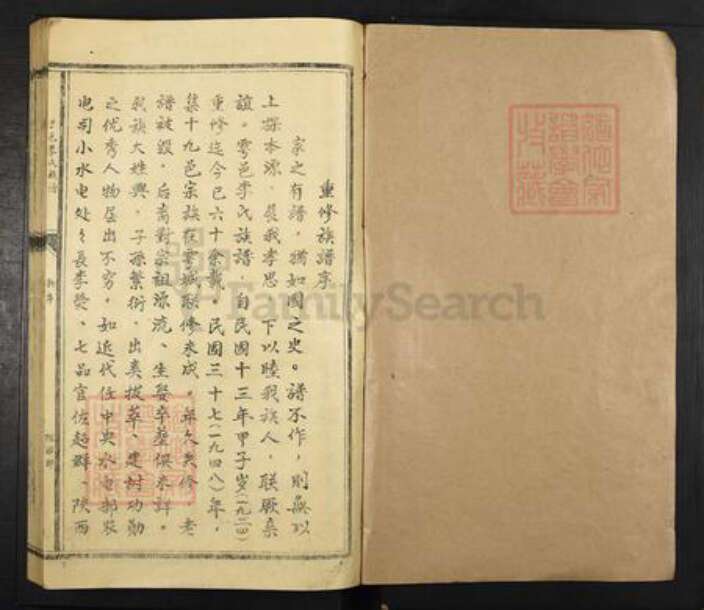 重修族譜序
家之有譜，猶如國之史。譜不作，則無以
上探本源、展我孝思，下以睦我族人，联厥桑
誼。雩邑李氏族譜，自民國十三年甲子岁(一九二四)
重修迄今已六十余載。民國三十七(一九四八)年，
集十九邑宗族在雩城联修未成，年久失修，老
譜被毀，后裔對宗祖源流、生娶卒塟俱未詳。
我族大姓興，子孫繁衍，出类拔萃、建树功勳
之优秀人物层出不穷，如近代任中央水电部农
电司小水电处处長李荣、七品官佐超群、陝西
FamilySearch